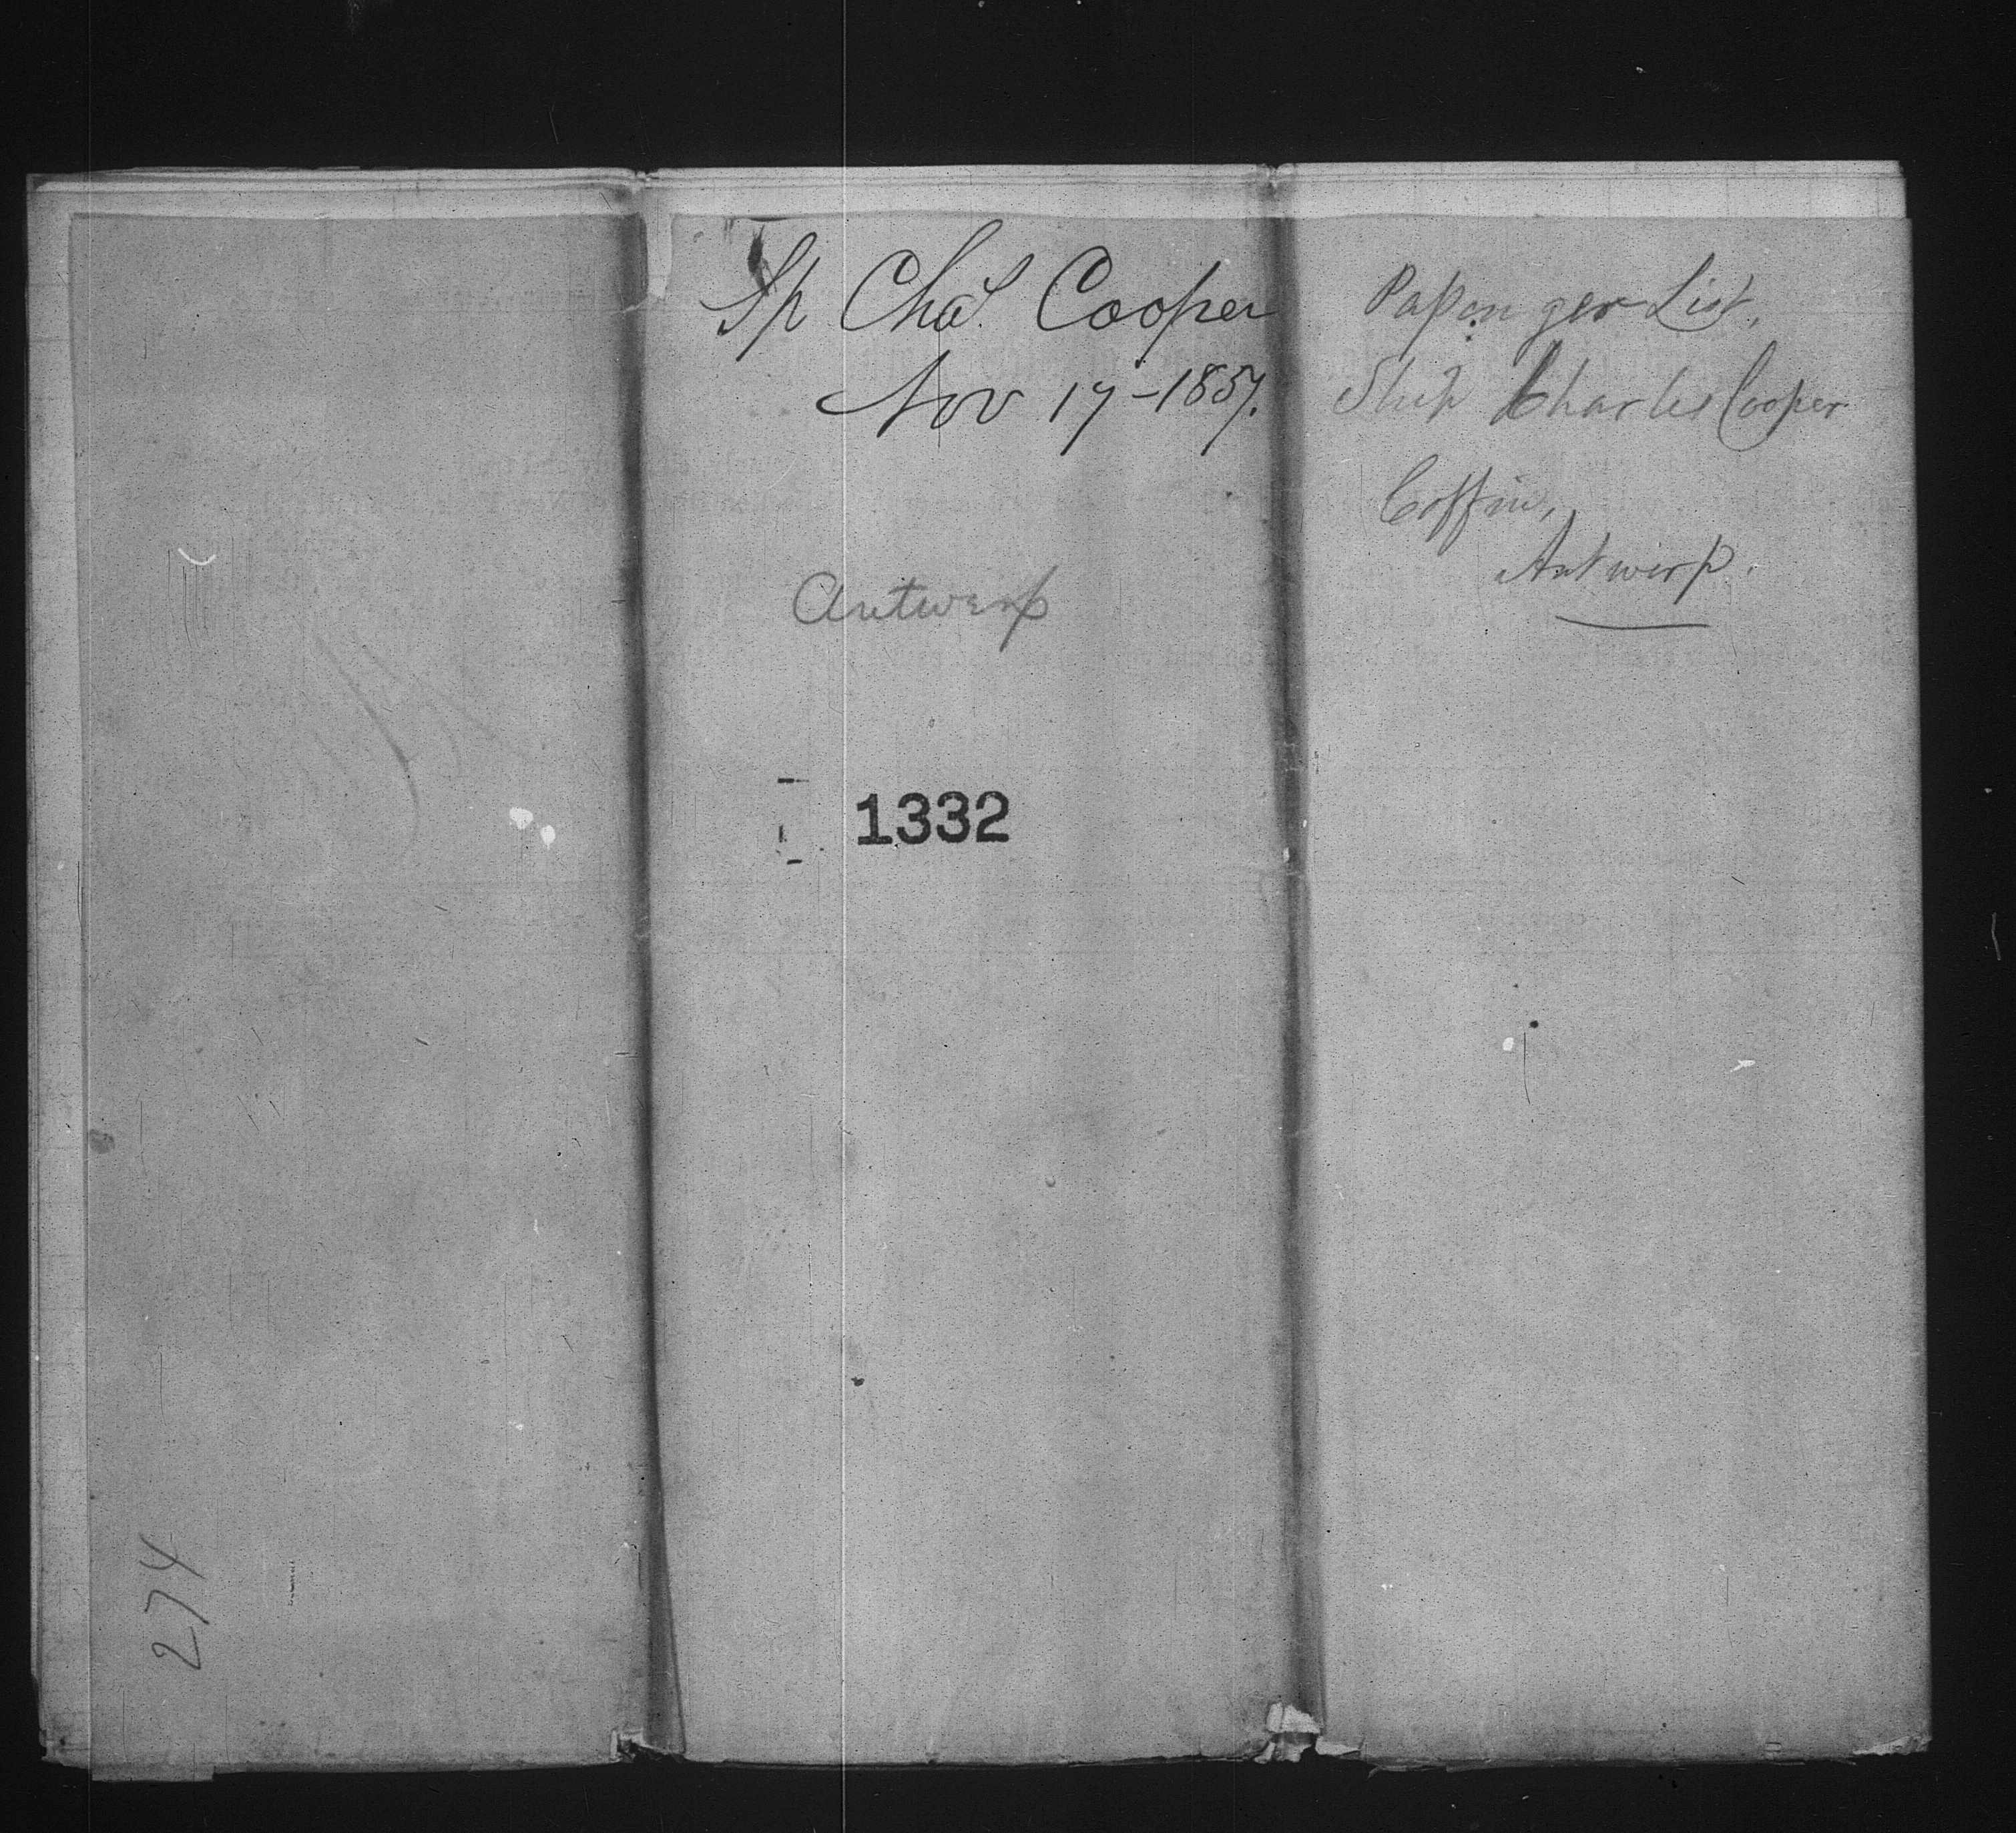 274
Sp Chas. Cooper
Nov 17-1857.
Antwerp
1332
Passenger List,
Ship Charles Cooper
Coffin,
Antwerp.